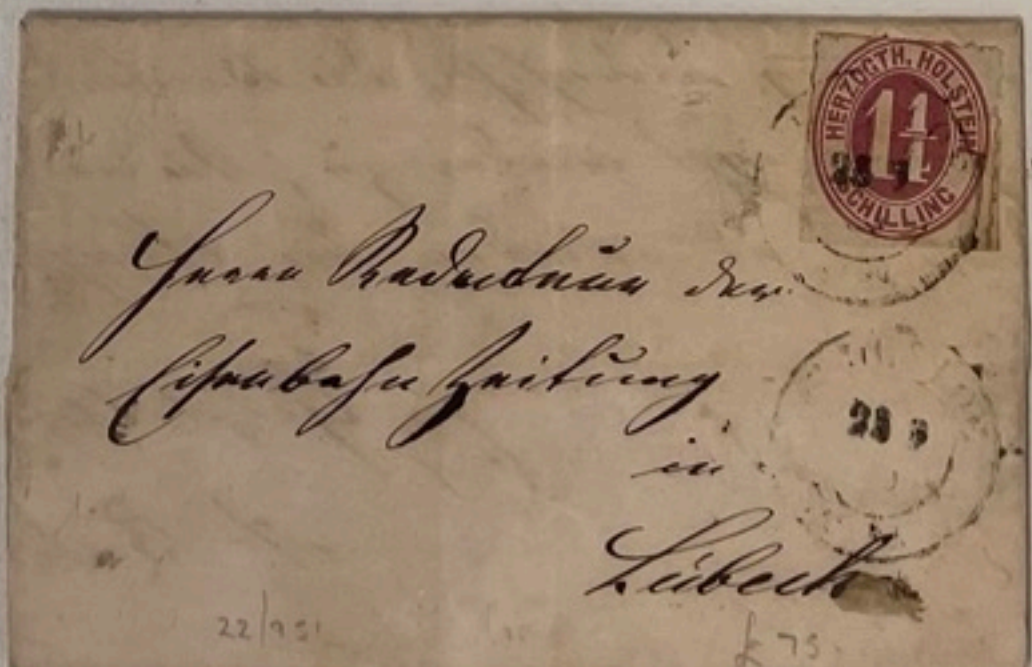 HERZOGTH. HOLSTEIN
1¼
SCHILLING
23
Herrn Redacteur der
Eisenbahn Zeitung
in
Lübeck
23
22/95
£ 75